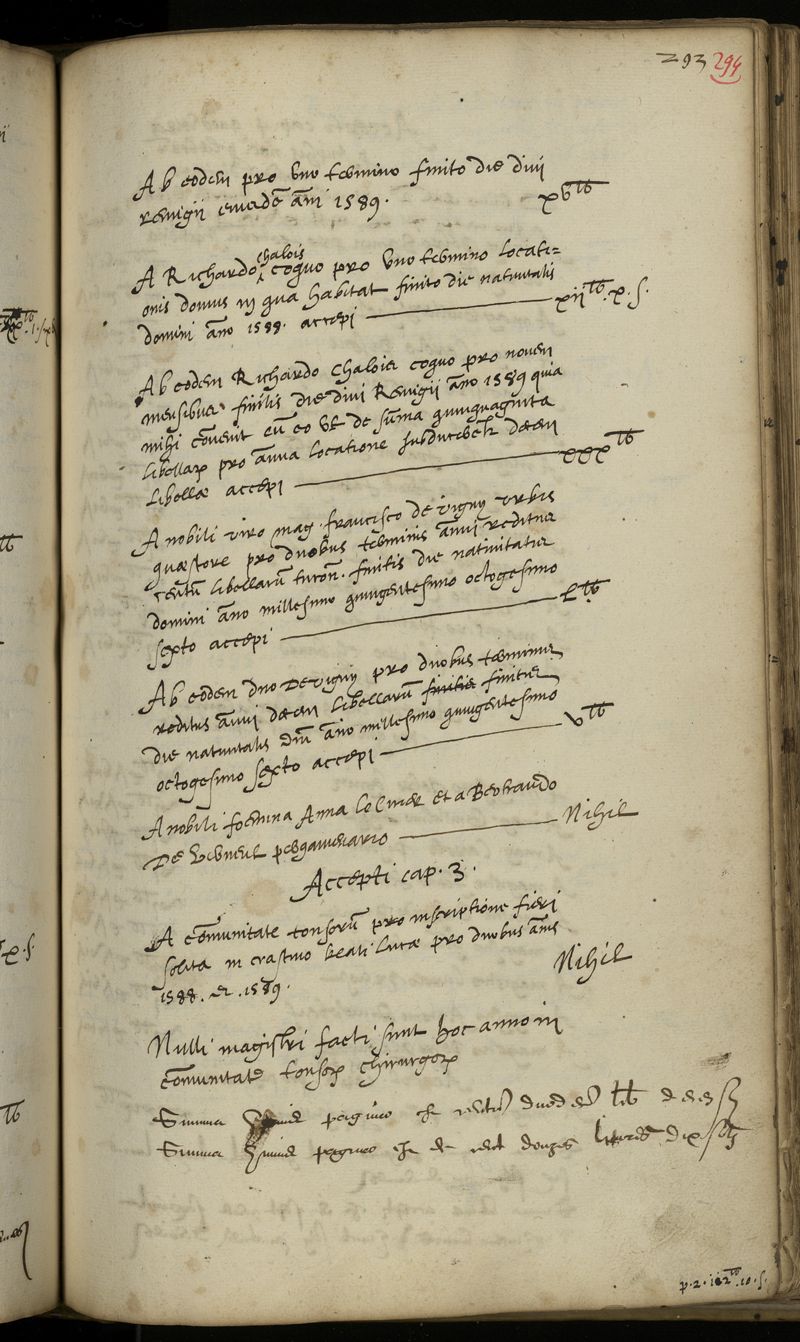 293 294
Ab eodem pro uno termino finito die divi
remigii eiusdē āni 1589. xv lb
A Richardo chalois coquo pro uno termino locati=
onis domus in qua habitat finito die nativitatis
domini āno 1588. accepi xii lb. x. s.
Ab eodem Richardo Chalois coquo pro novem
mensibus finitis die divi Remigii āno 1589 quia
mihi cōvenit cū eo ut de sūma quinquaginta
libellarꝝ pro annua locatione subducerētr decem
libellæ accepi xxx lb
A nobili viro mag. francisco de vigny urbis
quæstore pro duobus terminis annui reditus
centū libellarū turoñ. finitis die nativitatis
domini āno millesimo quingentesimo octogesimo
sexto accepi L lb
Ab eodem dño De vigny pro duobus terminis
reditus annui decem libellarū finitis finitis
die nativitatis dñi āno millesimo quingentesimo
octogesimo sexto accepi v lb
A nobili foemina Anna et a Bertrando
De pergamenario Nihil
Accepti cap. 3.
A cōmunitate tonsorū pro inscriptione fieri
solita in crastino beati Lucæ pro duobus annis
1588. et. 1589. Nihil
Nulli magistri facti sunt hoc anno in
cōmunitate tonsorꝝ chirurgorꝝ
Summa
Summa
p. 2. 112 lb. 10. s.